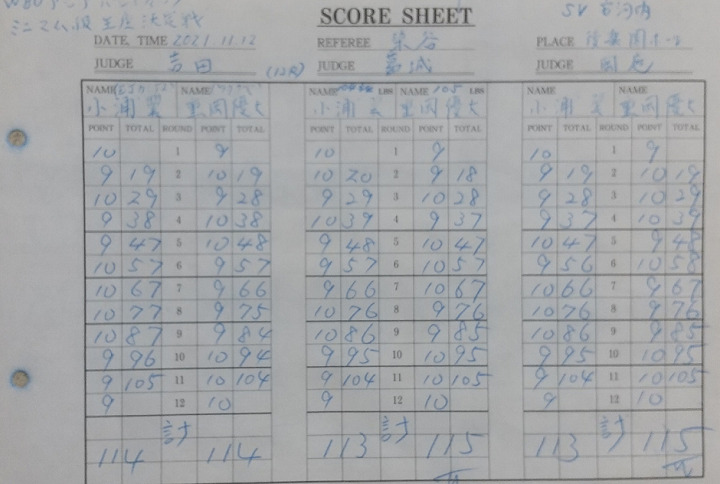 ミニマム級王座決定戦
SCORE SHEET
DATE, TIME 2021.11.12 REFEREE 染谷 PLACE
JUDGE 吉田 (12R) JUDGE 葛城 JUDGE
NAME NAME NAME LBS NAME 105 LBS NAME NAME
小浦翼 重岡優大 小浦翼 重岡優大 小浦翼 重岡優大
POINT TOTAL ROUND POINT TOTAL POINT TOTAL ROUND POINT TOTAL POINT TOTAL ROUND POINT TOTAL
10 1 9 10 1 9 10 1 9
9 19 2 10 19 10 20 2 9 18 9 19 2 10 19
10 29 3 9 28 9 29 3 10 28 9 28 3 10 29
9 38 4 10 38 10 39 4 9 37 9 37 4 10 39
9 47 5 10 48 9 48 5 10 47 10 47 5 9 48
10 57 6 9 57 9 57 6 10 57 9 56 6 10 58
10 67 7 9 66 9 66 7 10 67 10 66 7 9 67
10 77 8 9 75 10 76 8 9 76 10 76 8 9 76
10 87 9 9 84 10 86 9 9 85 10 86 9 9 85
9 96 10 10 94 9 95 10 10 95 9 95 10 10 95
9 105 11 10 104 9 104 11 10 105 9 104 11 10 105
9 12 10 9 12 10 9 12 10
計 計 計
114 114 113 115 113 115